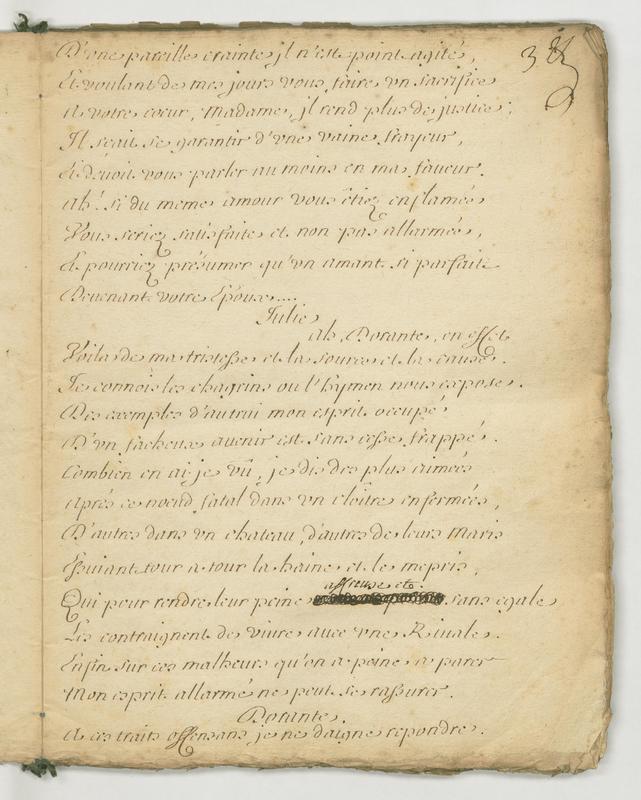 D'une pareille crainte il n'est point agité,
Et voulant de mes jours vous faire un sacrifice
A votre coeur, Madame, il rend plus de justice;
Il scait se garantir d'une vaine frayeur,
Et devoit vous parler au moins en ma faveur.
Ah! si du meme amour vous étiez enflamée
Vous seriez satisfaite et non pas allarmée,
Et pourriez présumer qu'un amant si parfait
Devenant votre Epoux....
Julie
ah, Dorante, en effet
Voila de ma tristesse et la source et la cause.
Je connois les chagrins ou l'hymen nous expose.
Des exemples d'autrui mon esprit occupé
D'un facheux avenir est sans cesse frappé.
Combien en ai-je vû, je dis des plus aimées
Après ce noeud fatal dans un cloitre enfermées,
D'autres dans un chateau, d'autres de leurs Maris
Essuiant tour a tour la haine et le mepris,
affreuse et
Qui pour rendre leur peine sans egale
Les contraignent de vivre avec une Rivale.
Enfin sur ces malheurs qu'on a peine a parer
Mon esprit allarmé ne peut se rassurer.
Dorante.
A ces traits offensans je ne daigne repondre.